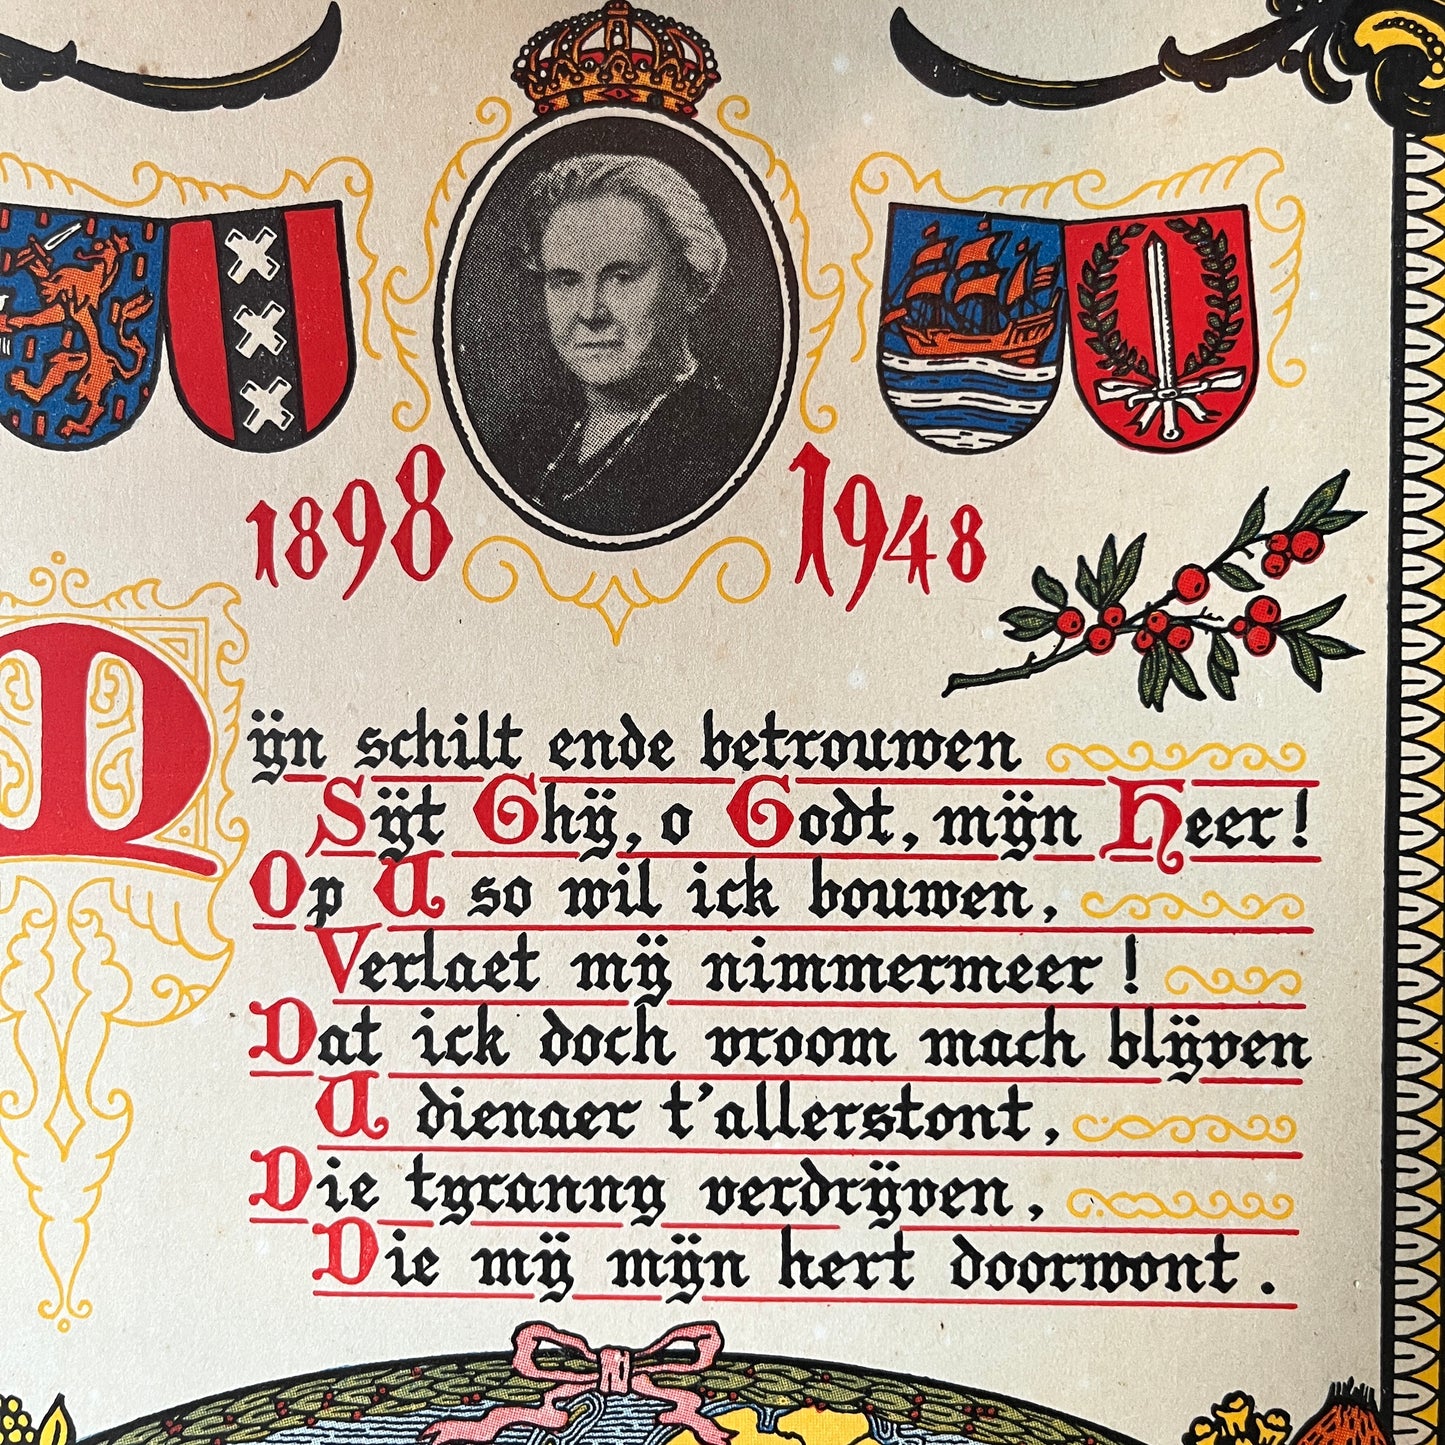 1898 1948
Dijn schilt ende betrouwen
Sijt Ghij, o Godt, mijn Heer!
Op U so wil ick bouwen,
Verlaet mij nimmermeer!
Dat ick doch vroom mach blijven
U dienaer t'allerstont,
Die tyranny verdrijven,
Die mij mijn hert doorwont.